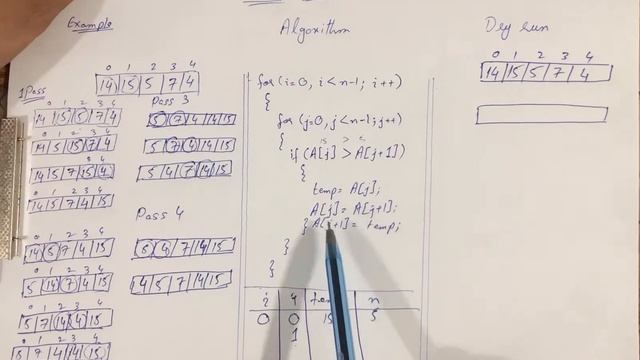 Example
0 1 2 3 4
14 15 5 7 4
1 Pass
0 1 2 3 4
14 15 5 7 4
0 1 2 3 4
14 5 15 7 4
3 4
14 5 7 15 4
0 1 2 3 4
14 5 7 4 15
0 1 2 3 4
14 5 7 4 15
0 1 2 3 4
5 14 7 4 15
0 1 2 3 4
5 7 14 4 15
0 1 2 3 4
Pass 3
5 7 4 14 15
5 7 4 14 15
5 4 7 14 15
Pass 4
5 4 7 14 15
4 5 7 14 15
Algorithm
for (i=0, i<n-1; i++)
{
for (j=0, j<n-1; j++)
{ 15 > 5
if (A[j] > A[j+1])
{
temp = A[j];
A[j] = A[j+1];
} A[j+1] = temp;
}
}
i
n
0 0 15 5
1
Dry run
0 1 2 3 4
14 15 5 7 4